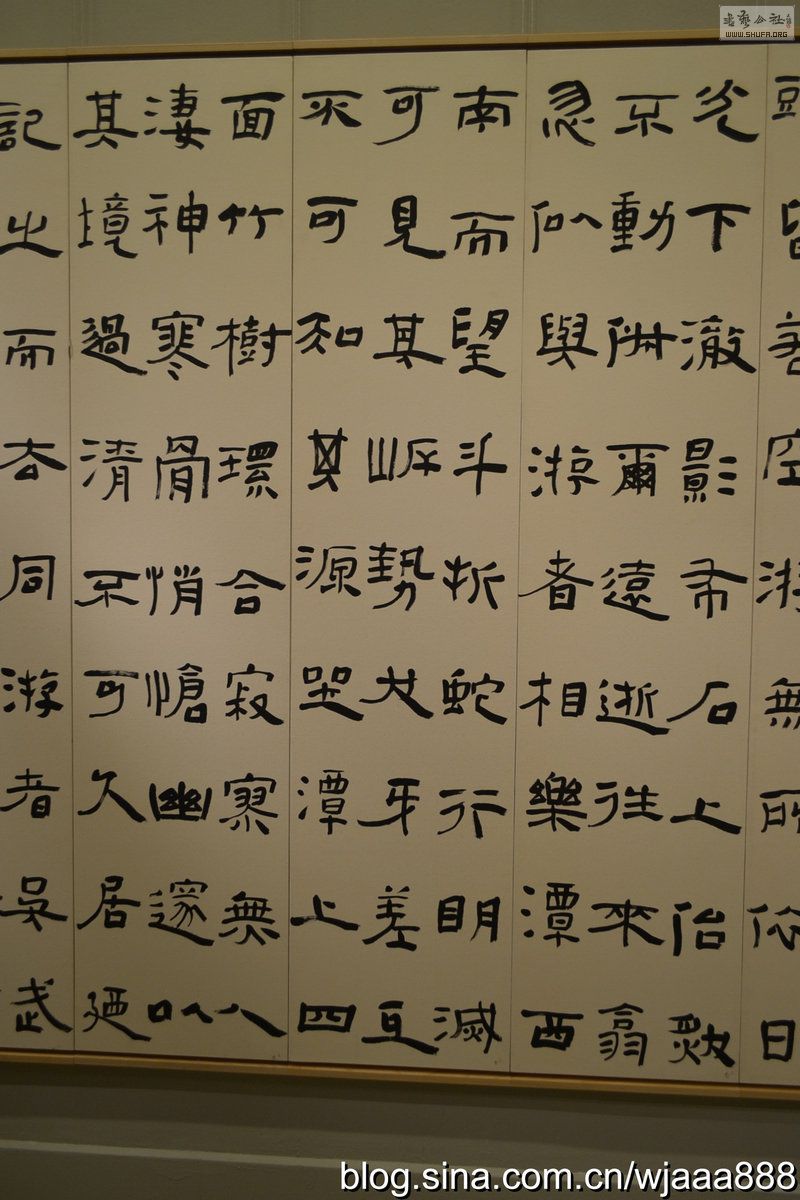 頭皆若空游無所依日
光下澈影布石上佁然
不動俶爾遠逝往來翕
忽似與游者相樂潭西
南而望斗折蛇行明滅
可見其岸勢犬牙差互
不可知其源坐潭上四
面竹樹環合寂寥無人
淒神寒骨悄愴幽邃以
其境過清不可久居迺
記之而去同游者吳武
書藝公社
WWW.SHUFA.ORG
blog.sina.com.cn/wjaaa888